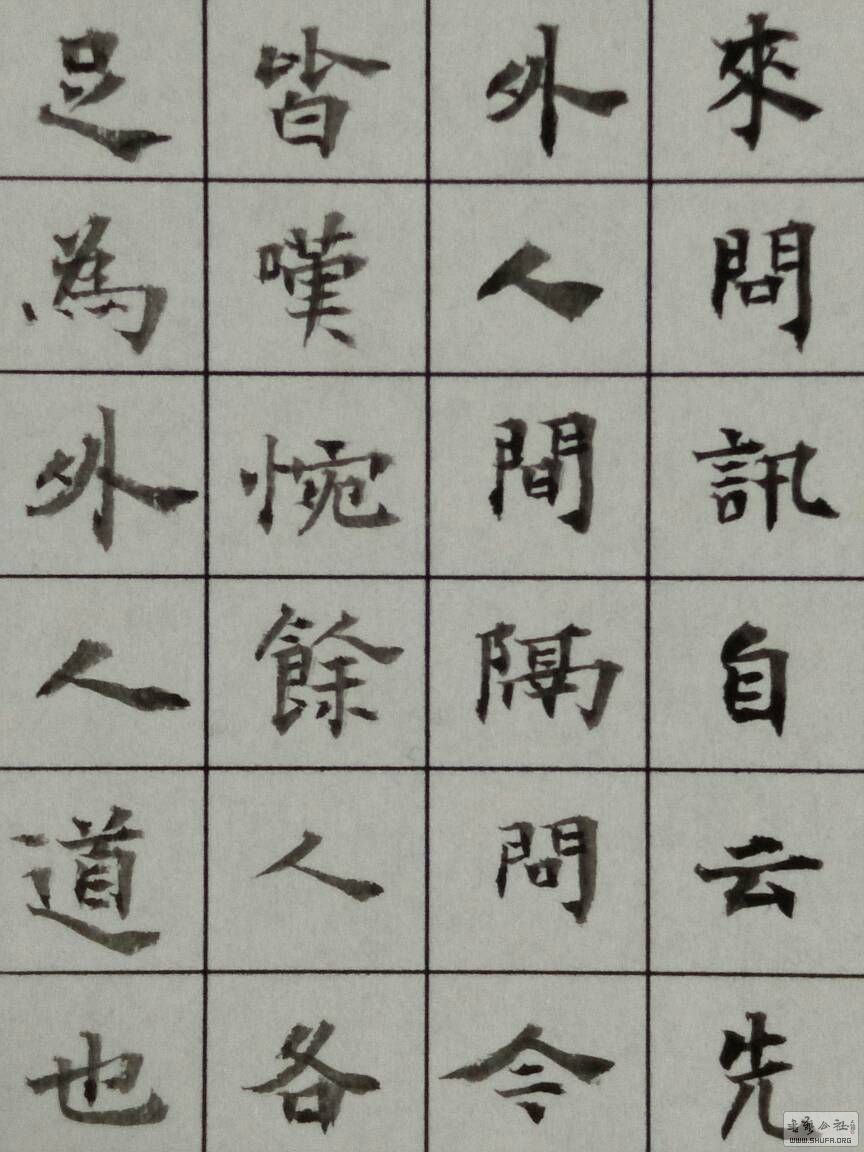 來問訊自云先
外人間隔問今
皆嘆惋餘人各
足為外人道也
WWW.SHUFA.ORG